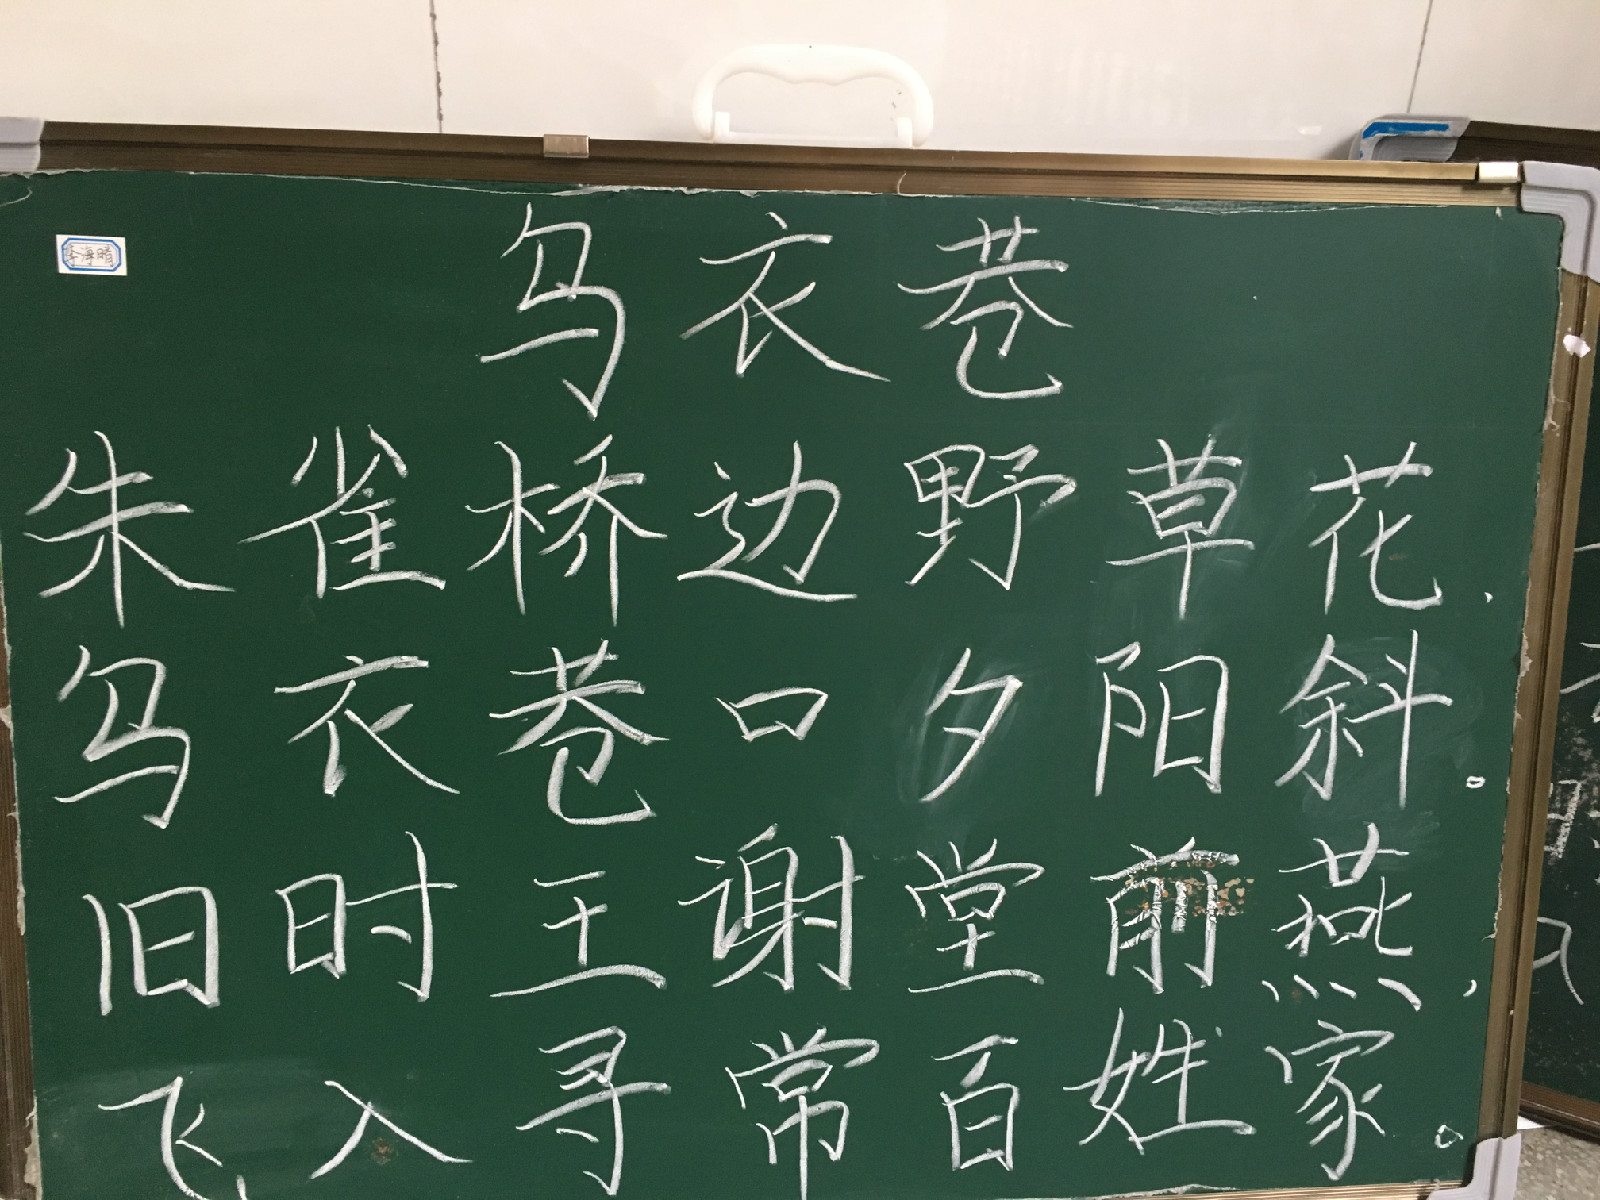 李海晴
乌衣巷
朱雀桥边野草花.
乌衣巷口夕阳斜。
旧时王谢堂前燕,
飞入寻常百姓家。